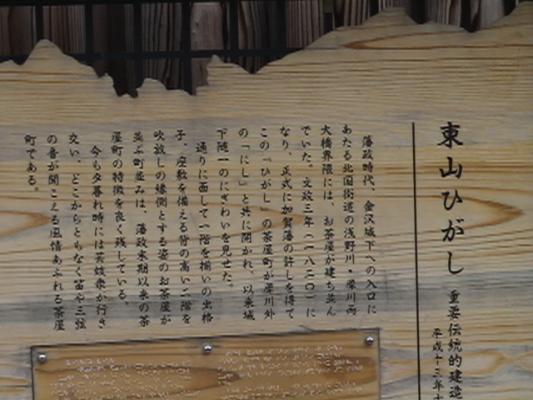 東山ひがし 重要伝統的建造
平成十三年十
藩政時代、金沢城下への入口に
あたる北国街道の浅野川・犀川両
大橋界隈には、お茶屋が建ち並ん
でいた。文政三年（一八二〇）に
なり、正式に加賀藩の許しを得て
この「ひがし」の茶屋町が犀川外
の「にし」と共に開かれ、以来城
下随一のにぎわいを見せた。
通りに面して一階を揃いの出格
子、座敷を備える背の高い二階を
吹放しの縁側とする姿のお茶屋が
並ぶ町並みは、藩政末期以来の茶
屋町の特徴を良く残している。
今も夕暮れ時には芸妓衆が行き
交い、どこからともなく笛や三弦
の音が聞こえる風情あふれる茶屋
町である。